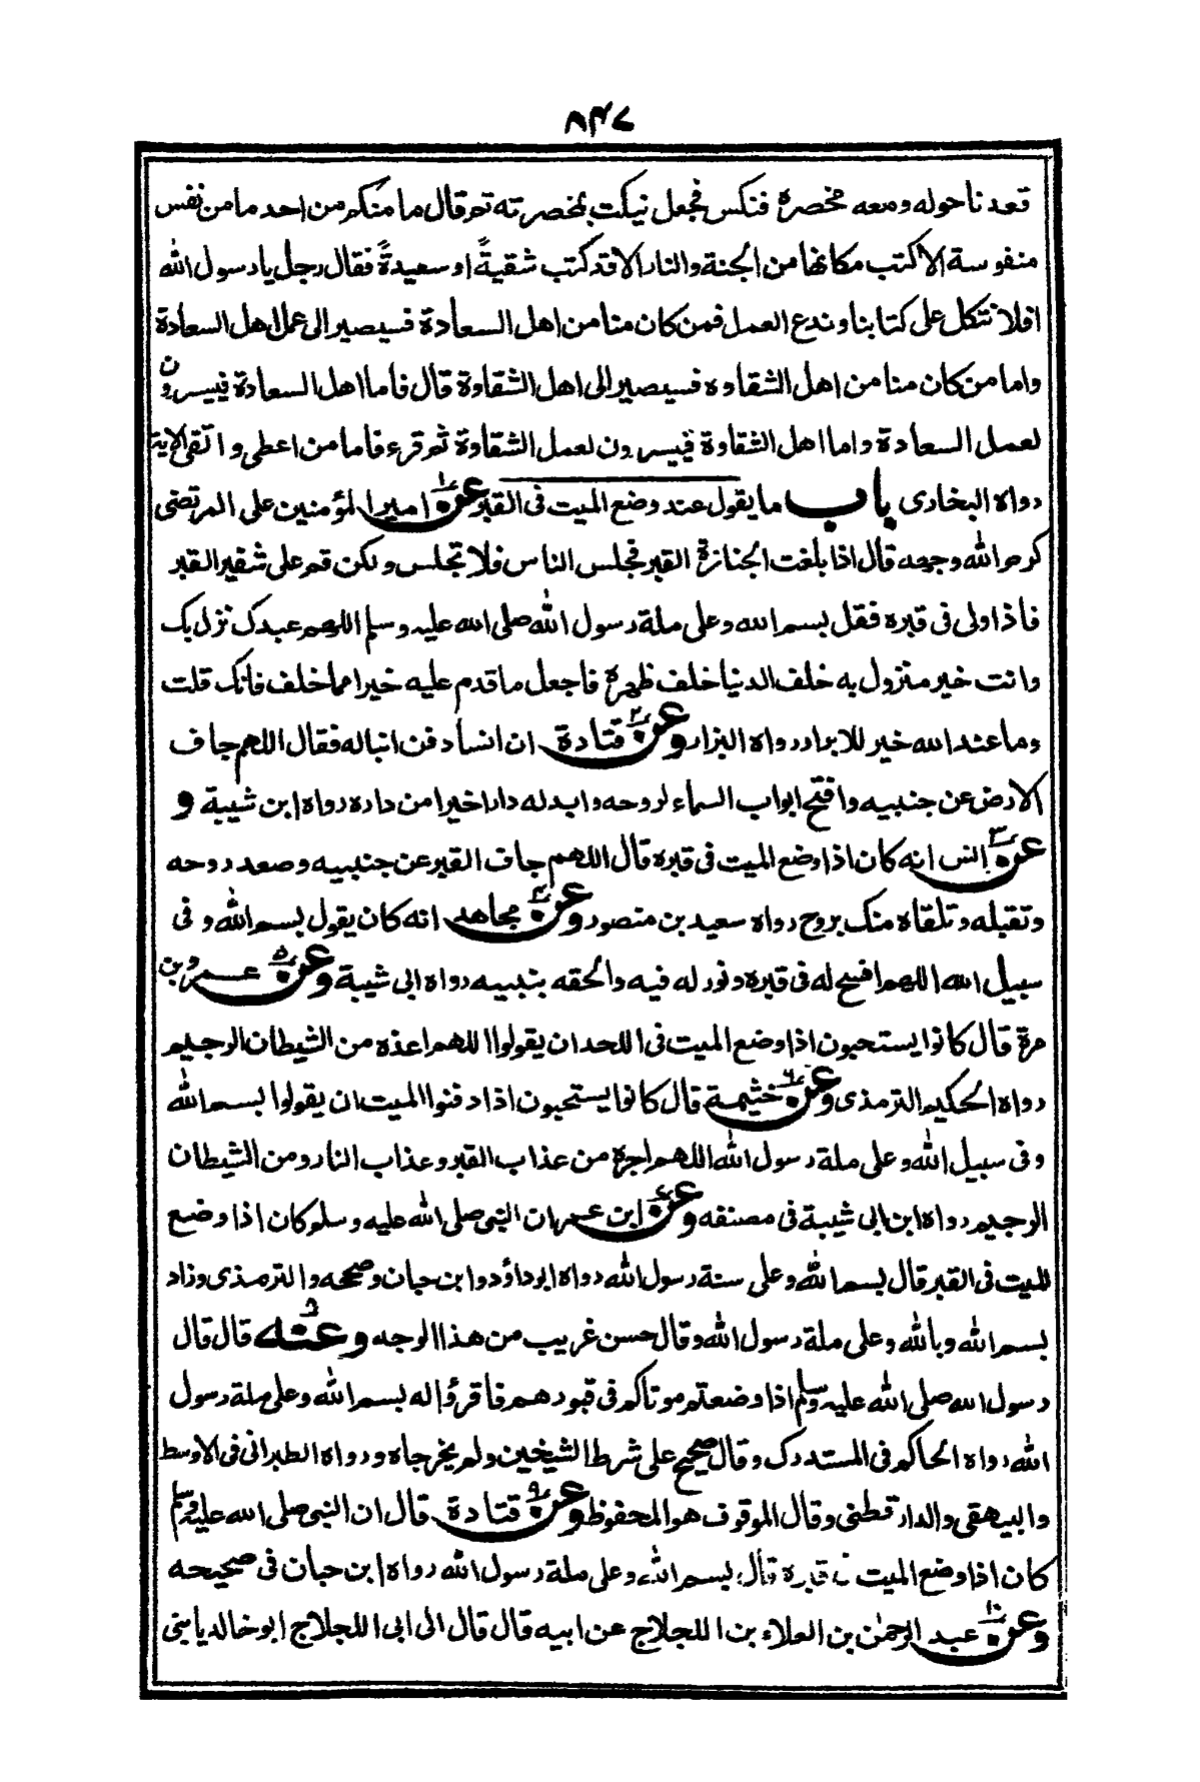 ۸۴۷
قعدنا حوله ومعه مخصرة فنكس فجعل ينكت بمخصرته ثم قال ما منكم من احد ما من نفس
منفوسة الا كتب مكانها من الجنة والنار الا قد كتب شقيةً او سعيدةً فقال رجل يا رسول الله
افلا نتكل على كتابنا وندع العمل فمن كان منا من اهل السعادة فسيصير الى عمل اهل السعادة
واما من كان منا من اهل الشقاوه فسيصير الى اهل الشقاوة قال فاما اهل السعادة فييسرون
لعمل السعادة واما اهل الشقاوة فييسرون لعمل الشقاوة ثم قرء فاما من اعطى واتقى الاية
رواه البخارى باب ما يقول عند وضع الميت فى القبر عن ۱ امير المؤمنين على المرتضى
كرم الله وجهه قال اذا بلغت الجنازة القبر فجلس الناس فلا تجلس ولكن قم على شفير القبر
فاذا ولى فى قبره فقل بسم الله وعلى ملة رسول الله صلى الله عليه وسلم اللهم عبدك نزل بك
وانت خير منزول به خلف الدنيا خلف ظهره فاجعل ما قدم عليه خيرا مما خلف فانك قلت
وما عند الله خير للابرار رواه البزار وعن ۲ قتادة ان انسا دفن ابنا له فقال اللهم جاف
الارض عن جنبيه وافتح ابواب السماء لروحه وابدله دارا خيرا من داره رواه ابن شيبة و
عن ۳ انس انه كان اذا وضع الميت فى قبره قال اللهم جاف القبر عن جنبيه وصعد روحه
وتقبله وتلقاه منك بروح رواه سعيد بن منصور وعن ۴ مجاهد انه كان يقول بسم الله وفى
سبيل الله اللهم افسح له فى قبره ونور له فيه والحقه بنبيه رواه ابى شيبة وعن ۵ عمرو بن
مرة قال كانوا يستحبون اذا وضع الميت فى اللحد ان يقولوا اللهم اعذه من الشيطان الرجيم
رواه الحكيم الترمذى وعن ۶ خثيمة قال كانوا يستحبون اذا دفنوا الميت ان يقولوا بسم الله
وفى سبيل الله وعلى ملة رسول الله اللهم اجره من عذاب القبر وعذاب النار ومن الشيطان
الرجيم رواه ابن ابى شيبة فى مصنفه وعن ۷ ابن عمر ان النبى صلى الله عليه وسلم كان اذا وضع
الميت فى القبر قال بسم الله وعلى سنة رسول الله رواه ابو داؤد وابن حبان وصححه والترمذى وزاد
بسم الله وبالله وعلى ملة رسول الله وقال حسن غريب من هذا الوجه وعنه ۸ قال قال
رسول الله صلى الله عليه وسلم اذا وضعتم موتاكم فى قبورهم فاقرؤا له بسم الله وعلى ملة رسول
الله رواه الحاكم فى المستدرك وقال صحيح على شرط الشيخين ولم يخرجاه ورواه الطبرانى فى الاوسط
والبيهقى والدارقطنى وقال الموقوف هو المحفوظ وعن ۹ قتادة قال ان النبى صلى الله عليه وسلم
كان اذا وضع الميت فى قبره قال بسم الله وعلى ملة رسول الله رواه ابن حبان فى صحيحه
وعن ۱۰ عبد الرحمٰن بن العلاء بن اللجلاج عن ابيه قال قال الى ابى اللجلاج ابو خالد يا بنى